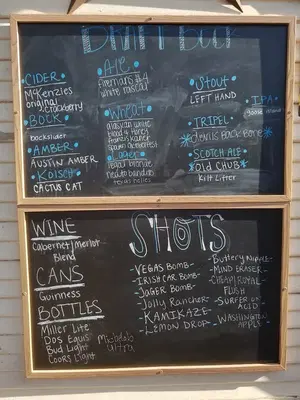 DRAFT
CIDER
McKenzies
original
BOCK
backslider
AMBER
AUSTIN AMBER
KOLSCH
CACTUS CAT
ALE
firemans #4
white rascal
Wheat
alaskan white
blood & honey
franziskaner
Lager
texas belles
Stout
LEFT HAND
TRIPEL
SCOTCH ALE
OLD CHUB
Kilt Lifter
IPA
goose island
WINE
Cabernet/merlot
Blend
CANS
Guinness
BOTTLES
Miller Lite
Dos Equis
Bud Light
Coors Light
Michelob
Ultra
SHOTS
-VEGAS BOMB-
-IRISH CAR BOMB-
-JAGER BOMB-
-Jolly Rancher-
-KAMIKAZE-
-LEMON DROP-
-Buttery Nipple-
-MIND ERASER-
-CHEAP ROYAL-
FLUSH
-SURFER ON
ACID
-WASHINGTON
APPLE-